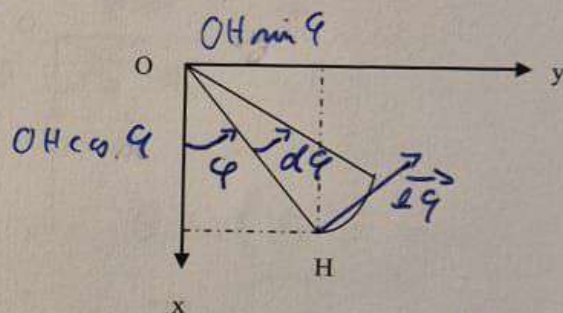 OH sin φ
O
y
OH cos. φ
φ
dφ
eφ
H
x